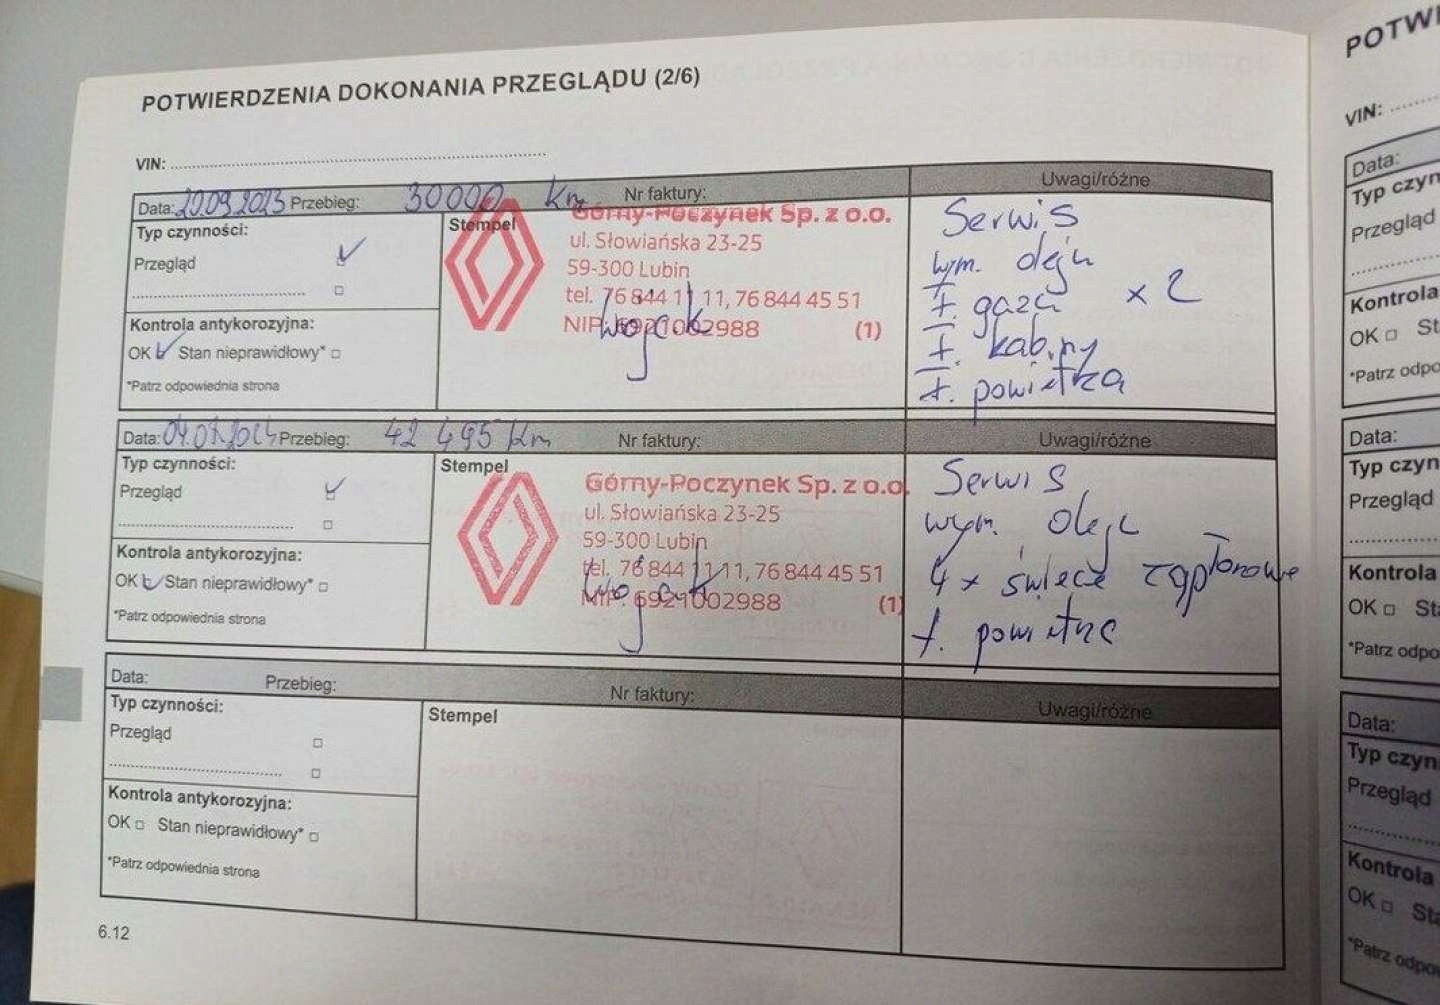 POTWIERDZENIA DOKONANIA PRZEGLĄDU (2/6)
VIN:
Data: 20.09.2023 Przebieg: 30000 Km Nr faktury: Uwagi/różne
Typ czynności:
Przegląd
Kontrola antykorozyjna:
OK Stan nieprawidłowy*
*Patrz odpowiednia strona
Stempel
Górny-Poczynek Sp. z o.o.
ul. Słowiańska 23-25
59-300 Lubin
tel. 76 844 11 11, 76 844 45 51
NIP: 6921002988 (1)
Wojak
Serwis
wym. oleju
f. gazu x 2
f. kabiny
f. powietrza
Data: 04.07.2024 Przebieg: 42 495 Km Nr faktury: Uwagi/różne
Typ czynności:
Przegląd
Kontrola antykorozyjna:
OK Stan nieprawidłowy*
*Patrz odpowiednia strona
Stempel
Górny-Poczynek Sp. z o.o.
ul. Słowiańska 23-25
59-300 Lubin
tel. 76 844 11 11, 76 844 45 51
NIP: 6921002988 (1)
Wojak
Serwis
wym. oleju
4 x świece zapłonowe
f. powietrza
Data: Przebieg: Nr faktury: Uwagi/różne
Typ czynności:
Przegląd
Kontrola antykorozyjna:
OK Stan nieprawidłowy*
*Patrz odpowiednia strona
Stempel
6.12
VIN:
Data:
Przegląd
Kontrola
OK
Data:
Przegląd
Kontrola
OK
Data:
Przegląd
Kontrola
OK